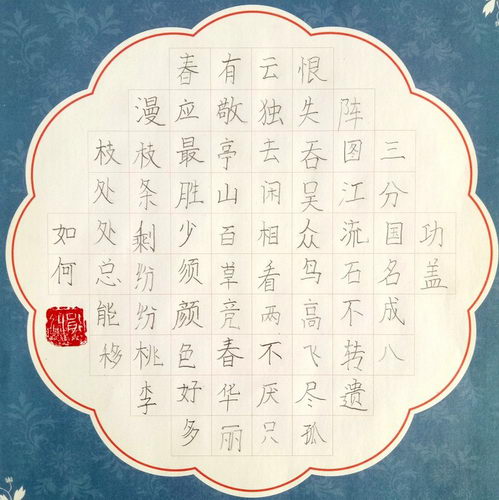 功盖
三分国名成八
阵图江流石不转遗
恨失吞吴众鸟高飞尽孤
云独去闲相看两不厌只
有敬亭山百草竞春华丽
春应最胜少须颜色好多
漫枝条剩纷纷桃李
枝处处总能移
如何